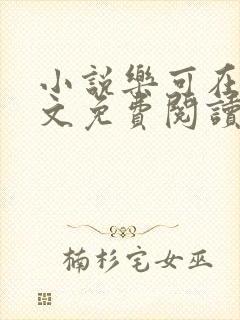 小說樂可在
文免費閱讀
楠杉宅女巫